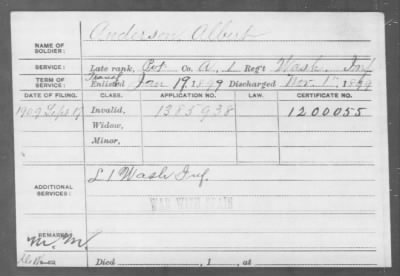 Anderson, Albert
NAME OF SOLDIER:
SERVICE: Late rank, Pvt Co. A, 1 Reg't Wash. Inf
TERM OF SERVICE: Enlisted Jan 19, 1899 Discharged Nov. 1st, 1899
DATE OF FILING. CLASS. APPLICATION NO. LAW. CERTIFICATE NO.
1909 Sept 17 Invalid, 1385938 1200055
Widow,
Minor,
ADDITIONAL SERVICES: L 1 Wash Inf.
WAR WITH SPAIN
REMARKS:
Died , 1 , at